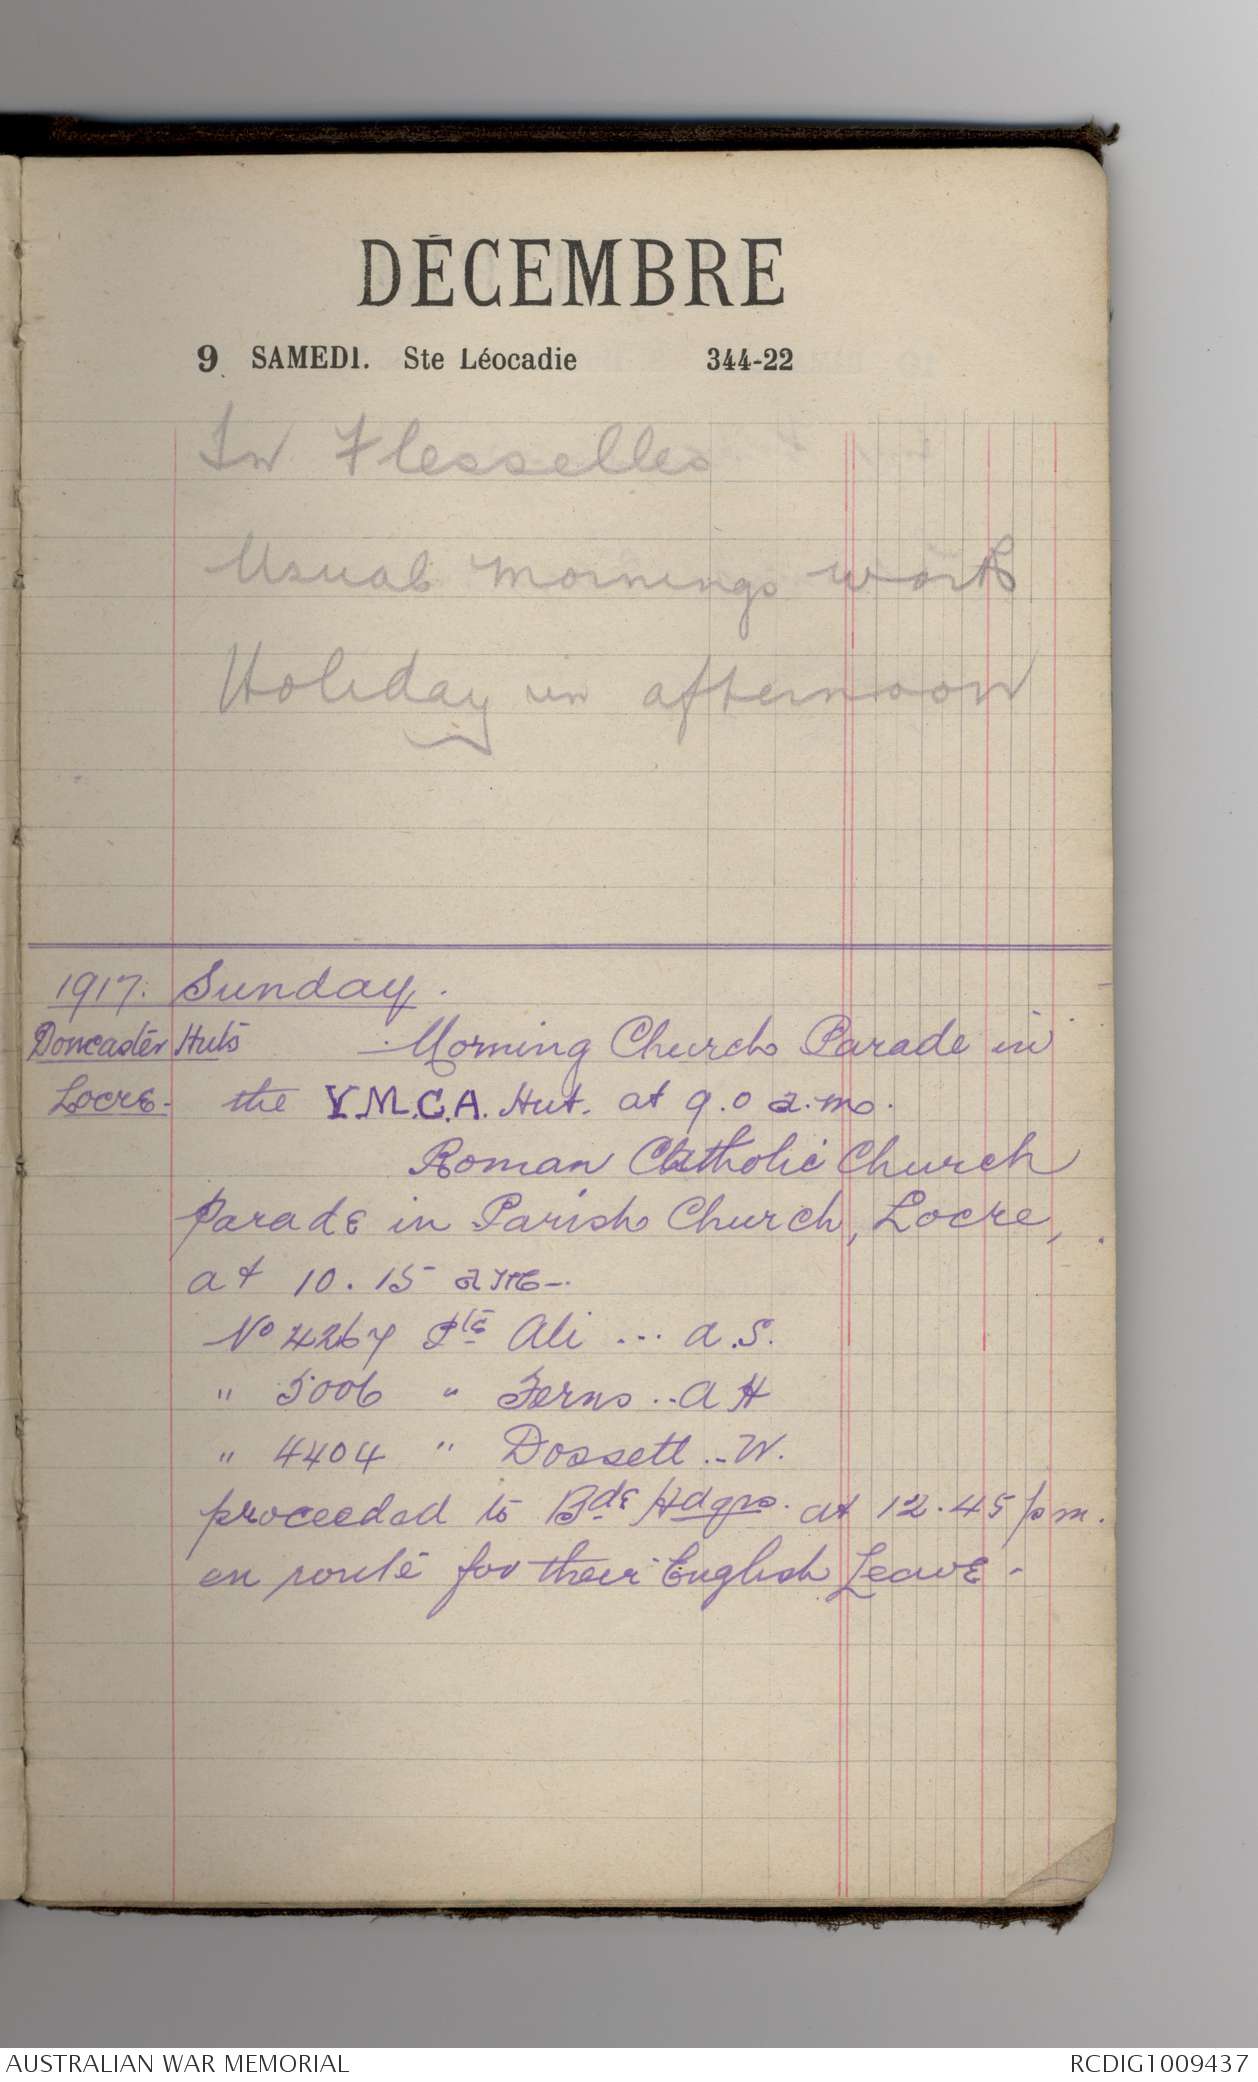 DÉCEMBRE
9 SAMEDI. Ste Léocadie 344-22
In Flesselles
Usual mornings work
Holiday in afternoon
1917. Sunday.
Doncaster Huts Morning Church Parade in
Locre. the Y.M.C.A. Hut. at 9.0 a.m.
Roman Catholic Church
Parade in Parish Church, Locre,
at 10.15 am.
No 4267 Pte Ali ... A.S.
" 5006 " Ferns .. A H
" 4404 " Dossett .. W.
proceeded to Bde Hdqrs. at 12.45 pm.
en route for their English Leave -
AUSTRALIAN WAR MEMORIAL RCDIG1009437